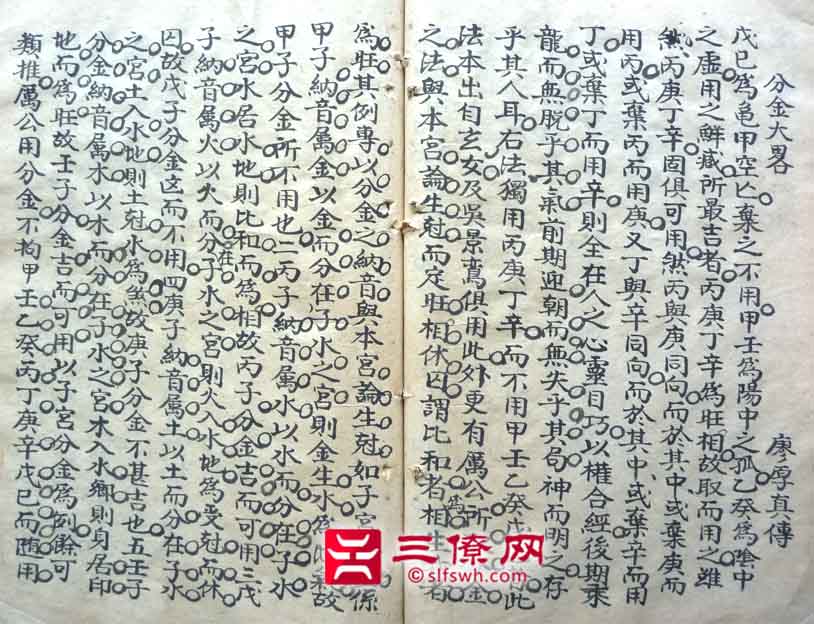 分金大畧
廖厚真傳
戊巳為龜甲空亾棄之不用甲壬為陽中之孤乙癸為陰中
之虛用之鮮蔵所最吉者丙庚丁辛為旺相故取而用之雖
然丙庚丁辛固俱可用然丙與庚同向而於其中或棄庚而
用丙或棄丙而用庚又丁與辛同向而於其中或棄辛而用
丁或棄丁而用辛則全在人之心靈目巧以權合經後期乘
龍而無脫乎其氣前期迎朝而無失乎其局神而明之存
乎其人耳右法獨用丙庚丁辛而不用甲壬乙癸戊 此
法本出自玄女及吳景鸞俱用此外更有厲公所 金
之法與本宮論生尅而定旺相休囚謂比和者為相生 者
為旺其例專以分金之納音與本宮論生尅如子宮 係
甲子納音屬金以金而分在子水之宮則金生水為 故
甲子分金所不用也二丙子納音屬水以水而分在子水
之宮水居水地則比和而為相故丙子分金吉而可用三戊
子納音屬火以火而分在子水之宮則火入水地為受尅而休
囚故戊子分金凶而不用四庚子納音属土以土而分在子水
之宮土入水地則土尅水為煞故庚子分金不甚吉也五壬子
分金納音屬木以木而分在子水之宮木入水鄉則身居印
地而為旺故壬子分金吉而可用以子宮分金為例餘可
類推厲公用分金不拘甲壬乙癸丙丁庚辛戊巳而隨用
三僚网
© slfswh.com